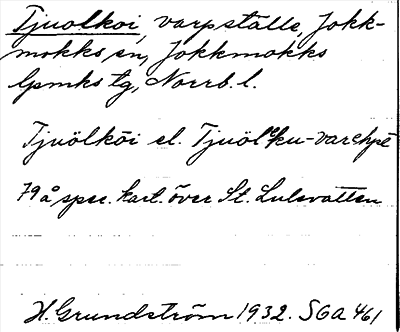 Tjuolkoi, varpställe, Jokk-
mokks sn, Jokkmokks
lpmks tg, Norrb. l.
Tjuölkōi el. Tjuölku-varehpe
79 å spec. kart. över St. Lulevatten
H. Grundström 1932. SGA 461